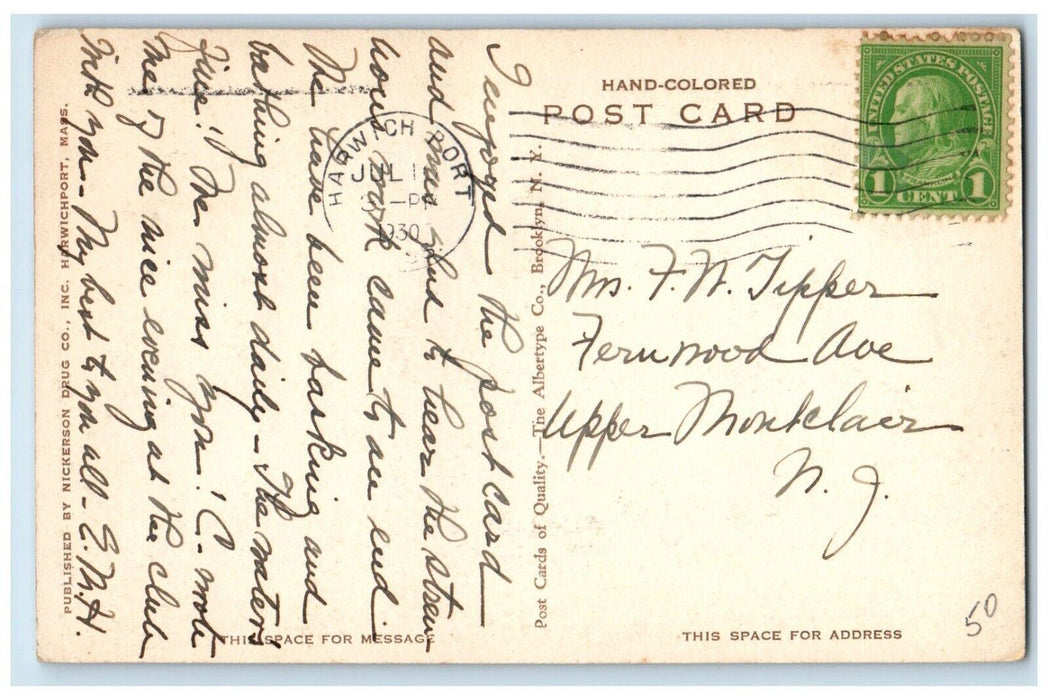 HAND-COLORED
POST CARD
UNITED STATES POSTAGE
FRANKLIN
1 CENT 1
HARWICH PORT
JUL 1
-PM
1930
I enjoyed the post card
and was glad to hear the stren
uous work came to an end.
We have been basking and
bathing almost daily - The water's
fine! We miss you! C - wrote
me of the nice evening at the club
with you - My best to you all - E.M.H.
Mrs. F. W. Tipper
Fernwood Ave
Upper Montclair
N. J.
Post Cards of Quality.—The Albertype Co., Brooklyn, N. Y.
PUBLISHED BY NICKERSON DRUG CO., INC. HARWICHPORT, MASS.
THIS SPACE FOR MESSAGE
THIS SPACE FOR ADDRESS
50